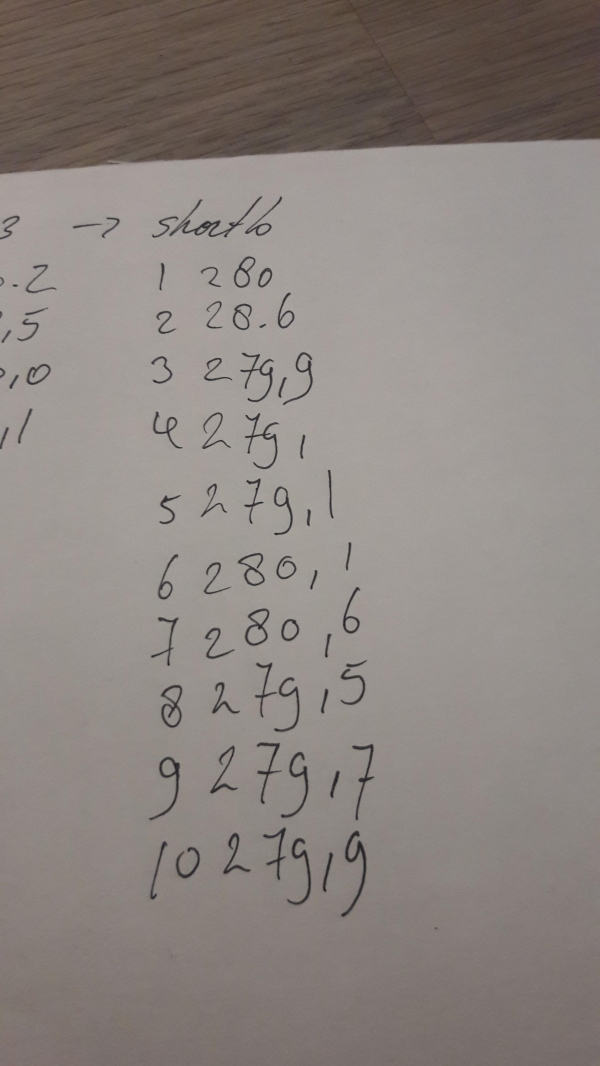 3 -> short6
.2 1 280
,5 2 28.6
,0 3 279,9
,1 4 279,
5 279,1
6 280,1
7 280,6
8 279,5
9 279,7
10 279,9